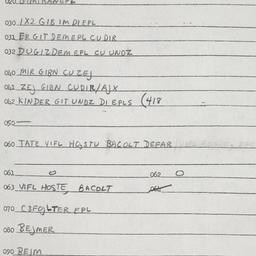 030 1X2 GIB IM DI EPL
031 ER GIT DEM EPL CU DIR
032 DU GIZ DEM EPL CU UNDZ
040 MIR GIBN CU ZEJ
041 ZEJ GIBN CUDIR/AJX
042 KINDER GIT UNDZ DI EPLS (418
050 —
060 TATE VIFL HOSTU BACOLT DEFAR
061 062
063 VIFL HOSTE BACOLT
070 EPL
080 BEJMER
090 BEJM